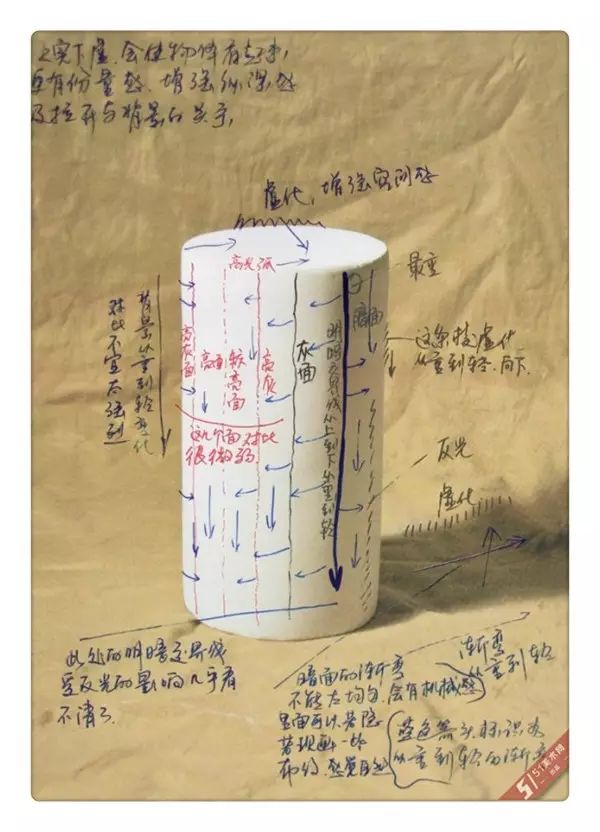 上实下虚.会使物体有起来,
且有份量感.增强纵深感
及拉开与背景的关系,
虚化,增强空间感
高光弧
最重
暗面
背景从重到轻变化
对比不宜太强烈
高灰面
高面
较亮面
高灰
灰面
明暗交界线从上到下从重到轻
这条线虚化
从重到轻.向下.
这几个面对比
很微弱.
反光
虚化
渐变
从重到轻
此处的明暗交界线
受反光的影响几乎看
不清了.
暗面的渐变
不能太均匀.会有机械感
里面可以是隐
著现画一些
布纹.感觉自然
蓝色箭头标识为
从重到轻的渐变
51美术网